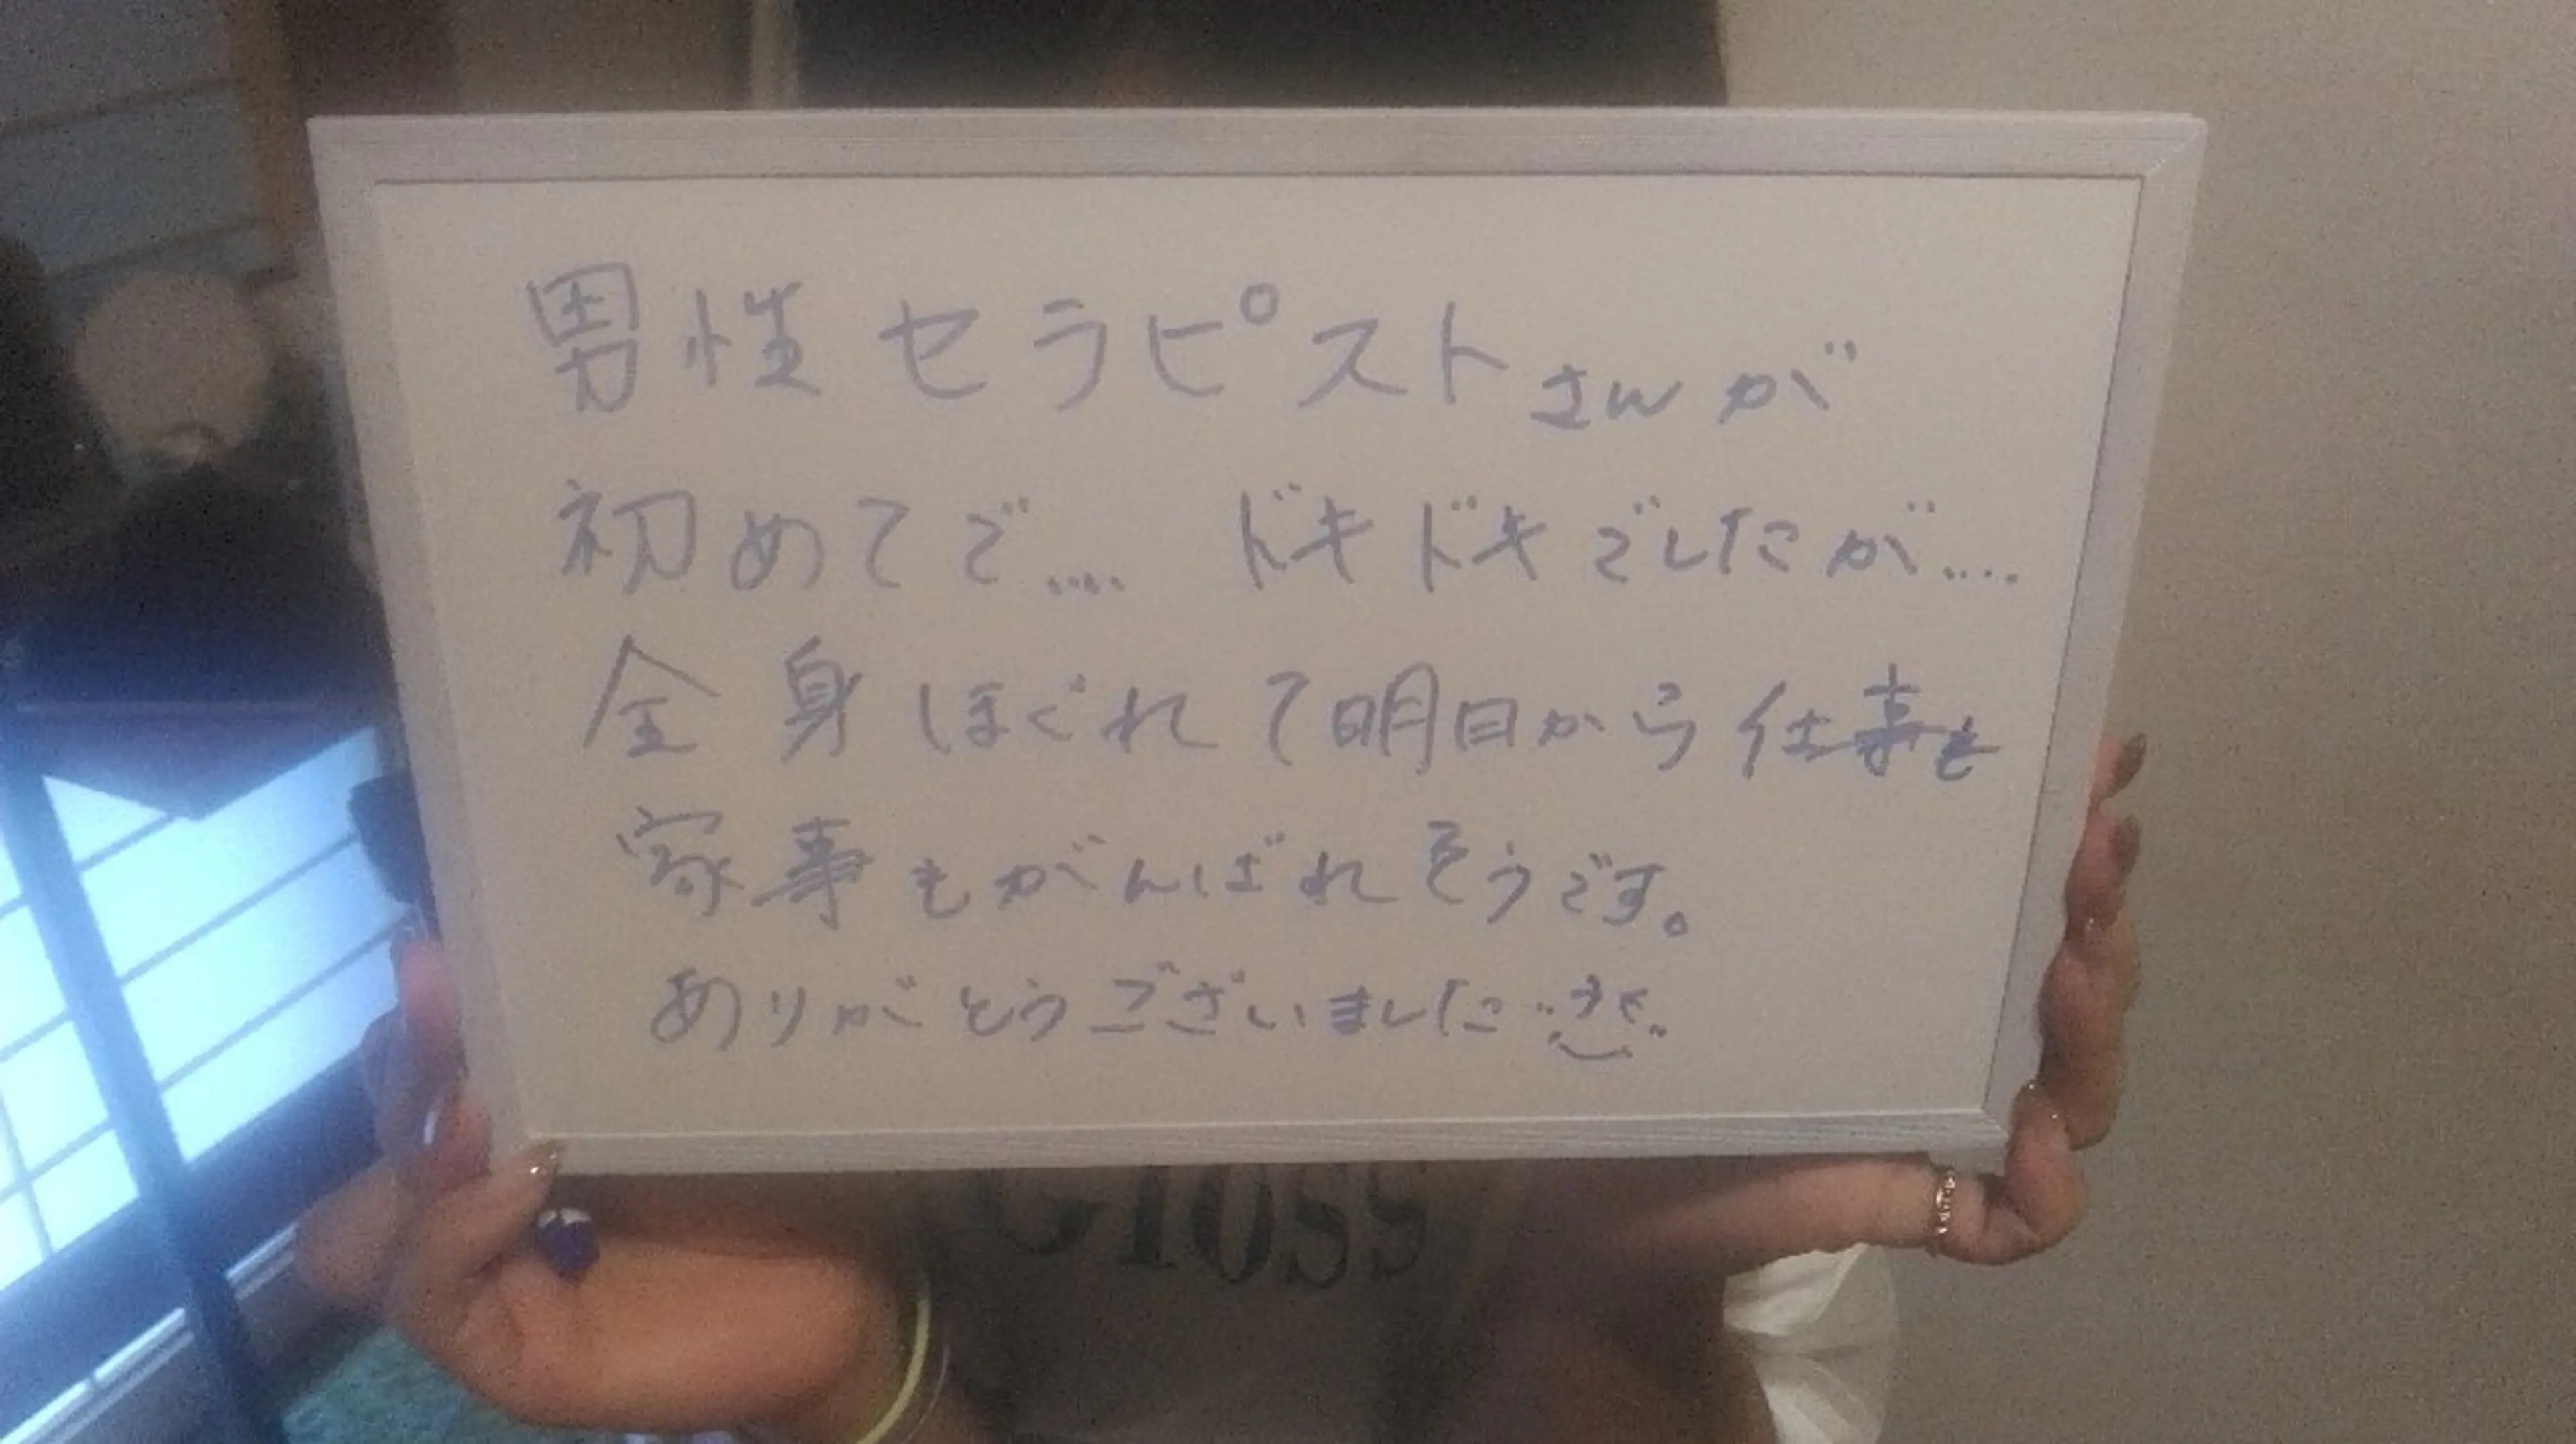 男性セラピストさんが
初めてで.... ドキドキでしたが....
全身ほぐれて明日から仕事も
家事もがんばれそうです。
ありがとうございました
Gloss